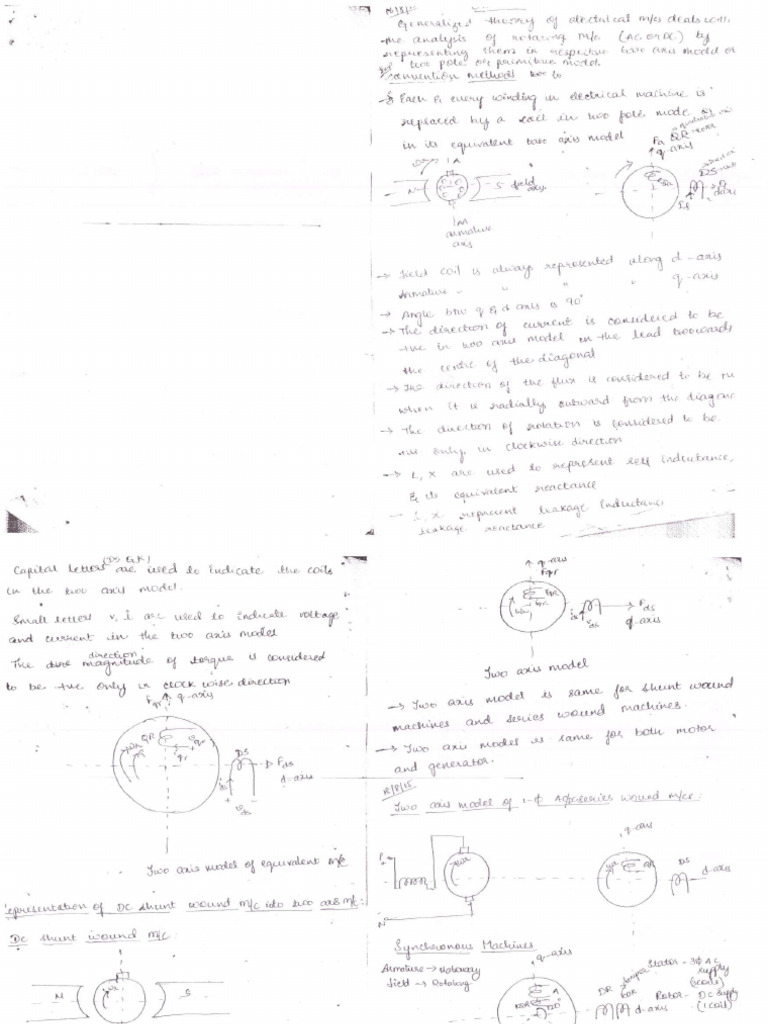 Generalized theory of electrical m/cs deals with
the analysis of rotating m/c (AC or DC) by
representing them in respective two axis model or
two pole or primitive model.
convention methods
→ Each & every winding in electrical machine is
replaced by a coil in two pole mode
in its equivalent two axis model
QR
q-axis
A
N
S
field axis
DS
d-axis
armature axis
→ field coil is always represented along d-axis
Armature " " " " q-axis
→ Angle btw q & d axis is 90°
→ The direction of current is considered to be
+ve in two axis model in the lead towards
the centre of the diagonal
→ The direction of the flux is considered to be +ve
when it is radially outward from the diagonal
→ The direction of rotation is considered to be
+ve only in clockwise direction
→ L, X are used to represent self inductance,
& its equivalent reactance
l, x represent leakage inductance
leakage reactance
Capital letters are used to indicate the coils
in the two axis model.
Small letters v, i are used to indicate voltage
and current in the two axis model
direction
The magnitude of torque is considered
to be +ve only in clock wise direction
q-axis
QR
DS
d-axis
Two axis model of equivalent m/c
representation of DC shunt wound m/c into two axis m/c:
Dc shunt wound m/c:
N
S
q-axis
d-axis
Two axis model
→ Two axis model is same for shunt wound
machines and series wound machines.
→ Two axis model is same for both motor
and generator.
18/8/15
Two axis model of 1-ϕ AC series wound m/c:
q-axis
QR
DS
d-axis
N
Synchronous Machines
Armature → stationary
field → Rotating
q-axis
Stator - 3ϕ AC
supply
(3 coils)
Rotor - DC supply
(1 coil)
d-axis